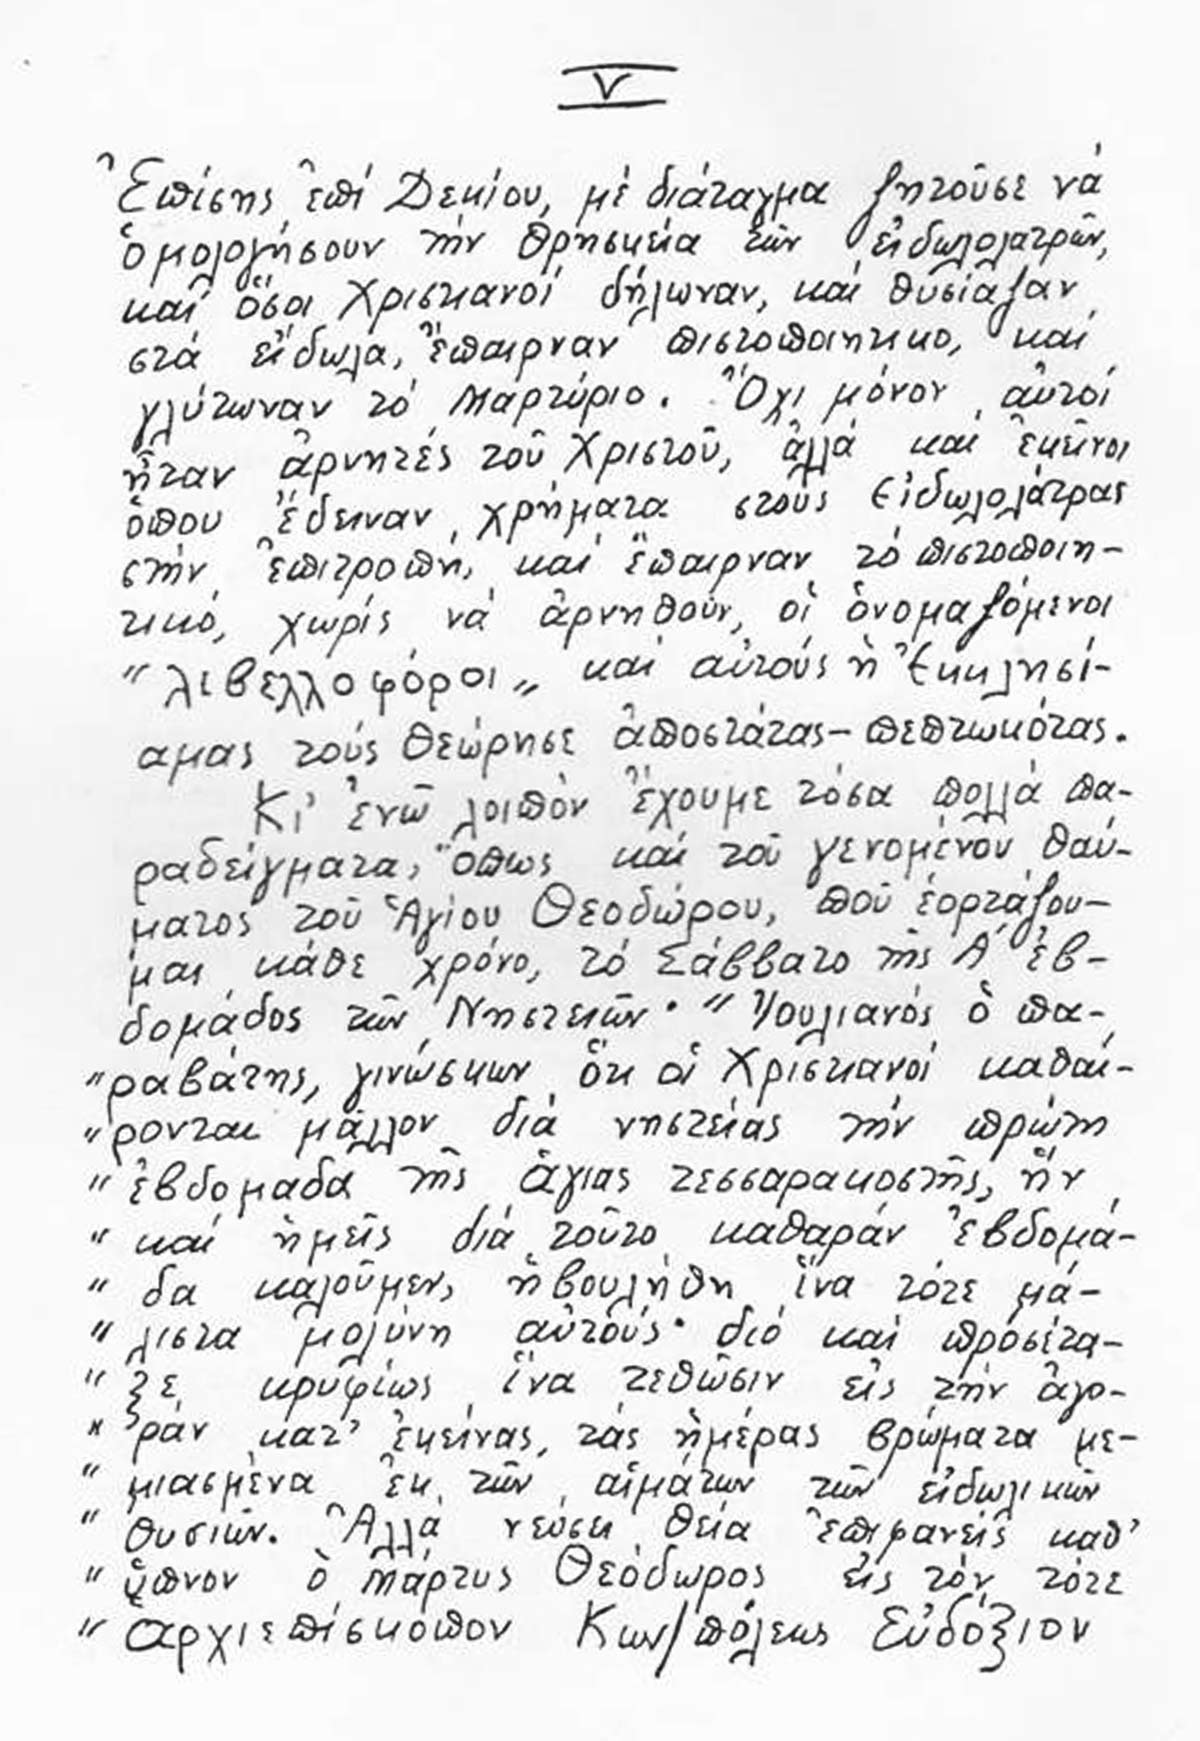 V
Ἐπίσης ἐπί Δεκίου, μέ διάταγμα ζητοῦσε νά
ὁμολογήσουν τήν θρησκεία τῶν εἰδωλολατρῶν,
καί ὅσοι Χριστιανοί δήλωναν, καί θυσίαζαν
στά εἴδωλα, ἔπαιρναν πιστοποιητικο, καί
γλύτωναν τό μαρτύριο. Ὄχι μόνον αὐτοί
ἦταν ἀρνητές τοῦ Χριστοῦ, ἀλλά καί ἐκεῖνοι
ὁπου ἔδειναν χρήματα στούς Εἰδωλολάτρας
στήν ἐπιτροπή, καί ἔπαιρναν τό πιστοποιη-
τικό, χωρίς νά ἀρνηθοῦν, οἱ ὀνομαζόμενοι
"λιβελλοφόροι" καί αὐτούς ἡ Ἐκκλησί-
αμας τούς θεώρησε ἀποστάτας-πεπτωκότας.
Κι' ἐνῶ λοιπόν ἔχουμε τόσα πολλά πα-
ραδείγματα, ὅπως καί τοῦ γενομένου θαύ-
ματος τοῦ Ἁγίου Θεοδώρου, ποῦ ἑορτάζου-
μαι κάθε χρόνο, τό Σάββατο τῆς Α' ἑβ-
δομάδος τῶν Νηστειῶν· "Ἰουλιανός ὁ πα-
"ραβάτης, γινώσκων ὅτι οἱ Χριστιανοί καθαί-
"ρονται μᾶλλον διά νηστείας τήν πρώτη
"ἑβδομαδα τῆς ἁγιας τεσσαρακοστῆς, ἥν
"καί ἡμεῖς διά τοῦτο καθαράν ἑβδομά-
"δα καλοῦμεν, ἠβουλήθη ἵνα τότε μά-
"λιστα μολύνη αὐτούς· διό καί προσέτα-
"ξε κρυφίως ἵνα τεθῶσιν εἰς τήν ἀγο-
"ράν κατ' ἐκείνας τάς ἡμέρας βρώματα με-
"μιασμένα ἐκ τῶν αἱμάτων τῶν εἰδωλικῶν
"θυσιῶν. Ἀλλά νεύσει θεία ἐπιφανείς καθ'
"ὕπνον ὁ μάρτυς Θεόδωρος εἰς τόν τότε
"ἀρχιεπίσκοπον Κων/πόλεως Εὐδόξιον